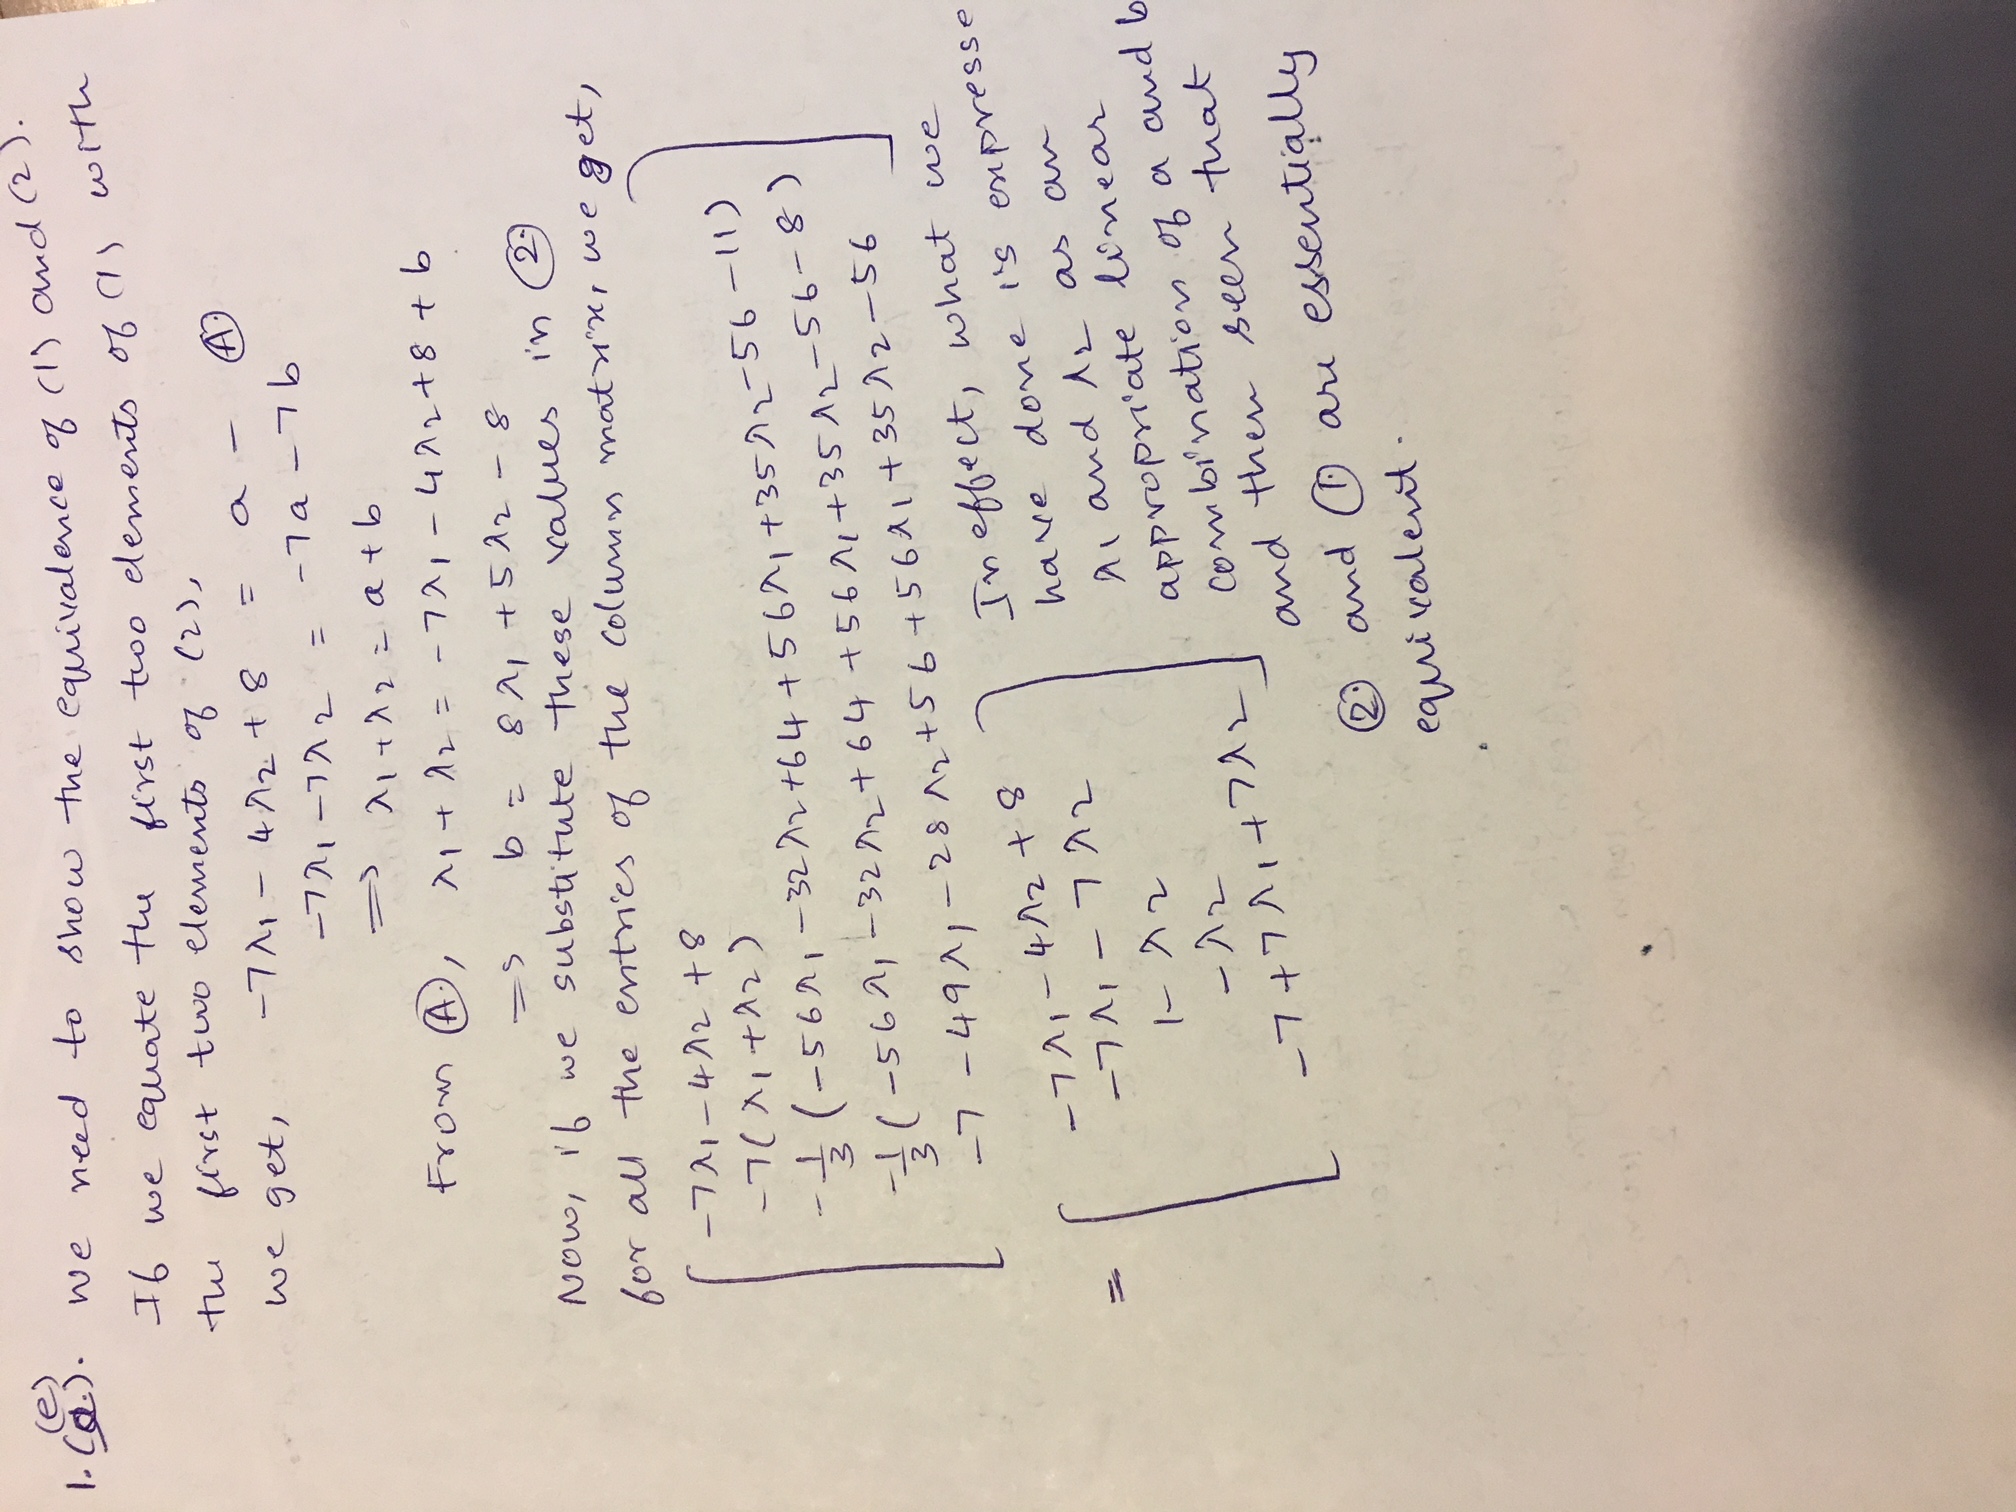 (e)
1.(d.). We need to show the equivalence of (1) and (2).
If we equate the first two elements of (1) with
the first two elements of (2),
we get, -7λ₁ - 4λ₂ + 8 = a - Ⓐ.
-7λ₁ - 7λ₂ = -7a - 7b
=> λ₁ + λ₂ = a + b
From Ⓐ., λ₁ + λ₂ = -7λ₁ - 4λ₂ + 8 + b
=> b = 8λ₁ + 5λ₂ - 8
Now, if we substitute these values in ②.
for all the entries of the column matrix, we get,
-7λ₁ - 4λ₂ + 8
-7(λ₁ + λ₂)
-1/3 (-56λ₁ - 32λ₂ + 64 + 56λ₁ + 35λ₂ - 56 - 11)
-1/3 (-56λ₁ - 32λ₂ + 64 + 56λ₁ + 35λ₂ - 56 - 8)
-7 - 49λ₁ - 28λ₂ + 56 + 56λ₁ + 35λ₂ - 56
= [ -7λ₁ - 4λ₂ + 8
-7λ₁ - 7λ₂
1 - λ₂
-λ₂
-7 + 7λ₁ + 7λ₂ ]
In effect, what we
have done is expresse
λ₁ and λ₂ as an
appropriate linear
combination of a and b
and then seen that
②. and ①. are essentially
equivalent.